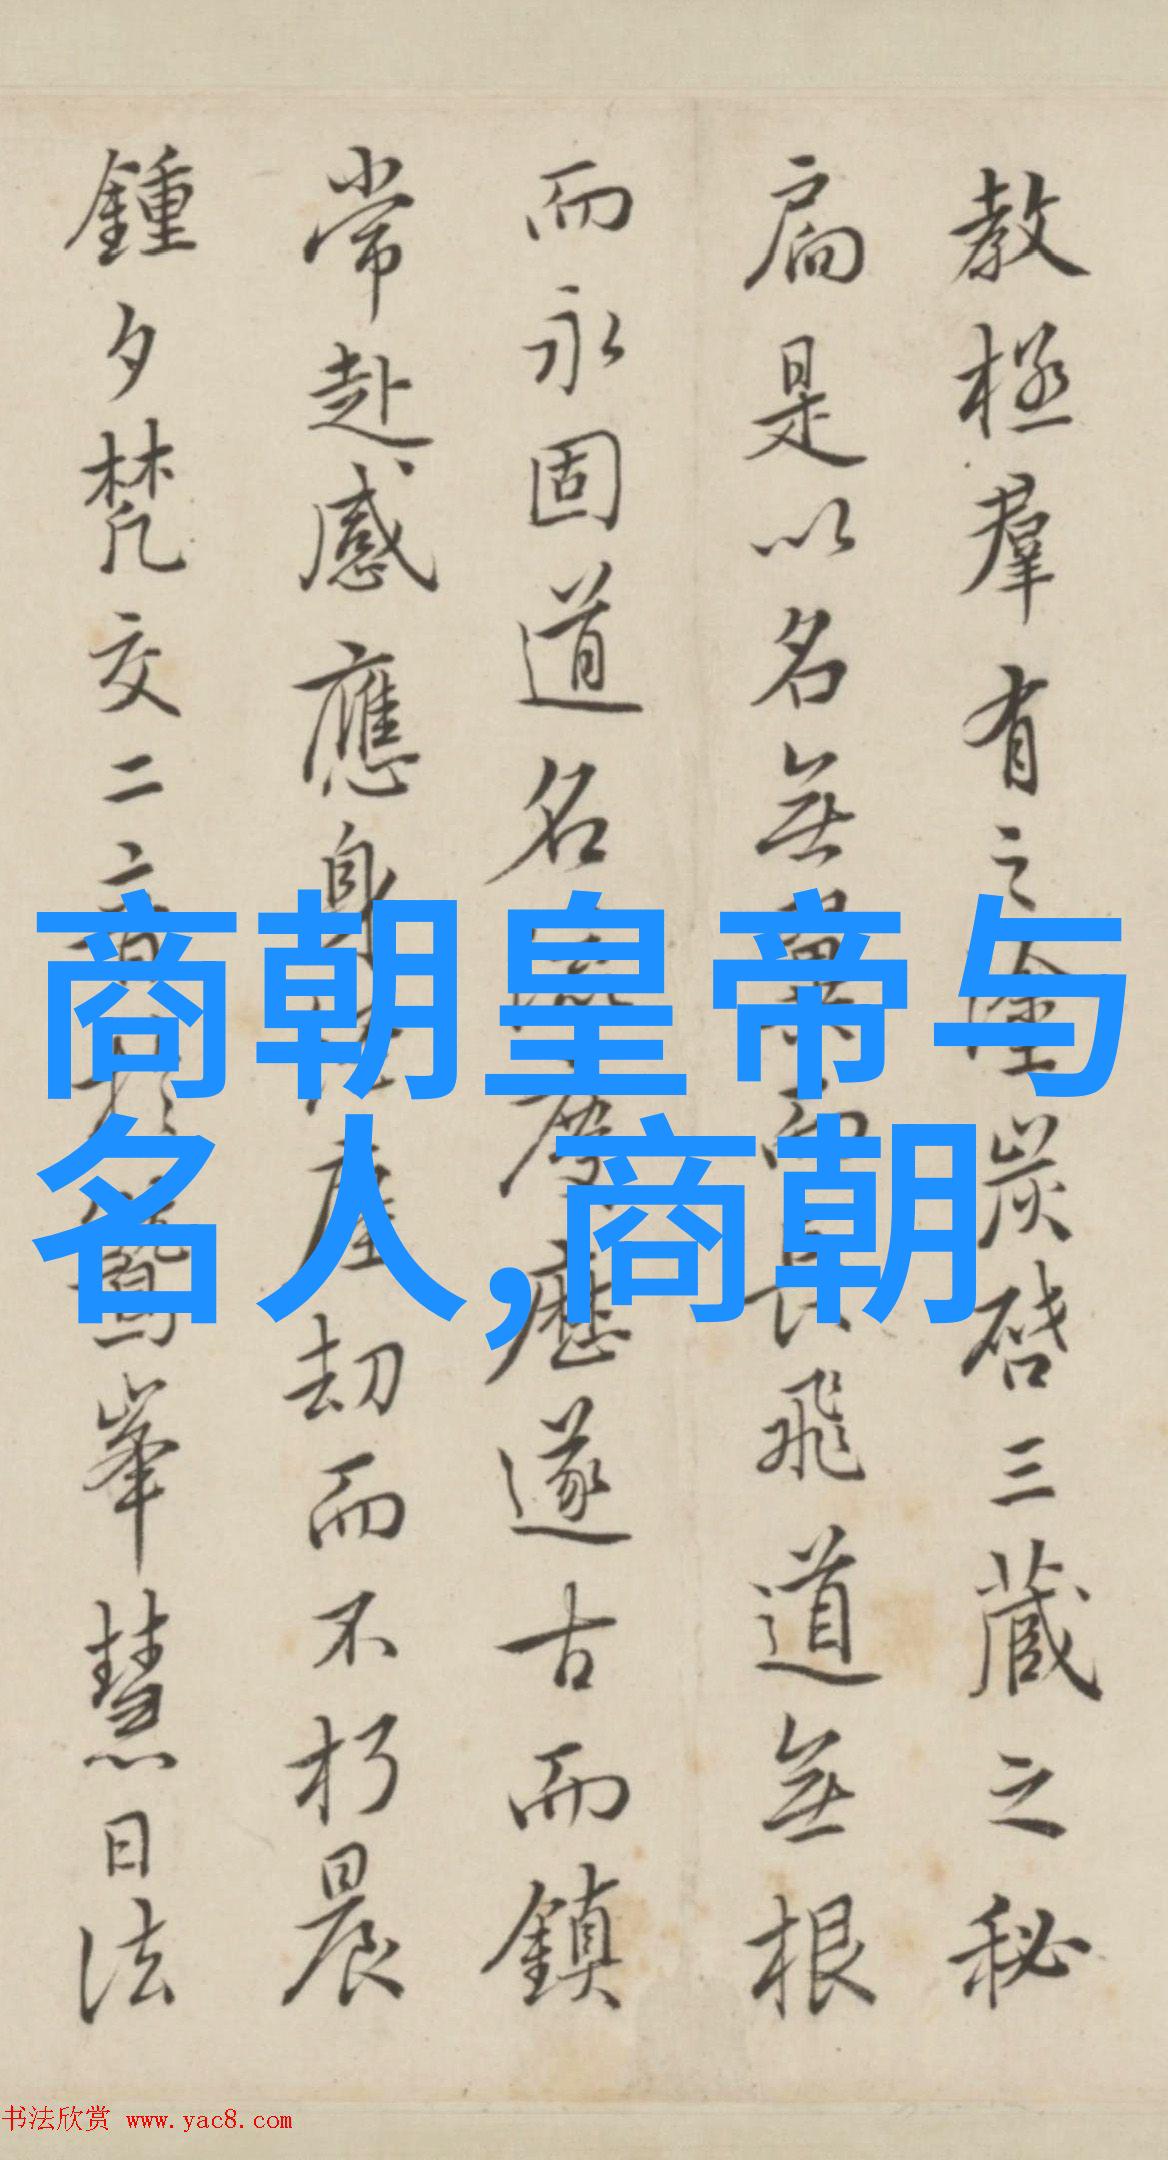 教極羣有之塗炭啓三藏之秘
扃是以名無翼而長飛道無根
而永固道名流慶歷遂古而鎮
常赴感應身經塵劫而不朽晨
鍾夕梵交二音於鷲峯慧日法
商朝皇帝与
名人,商朝
书法欣赏 www.yac8.com